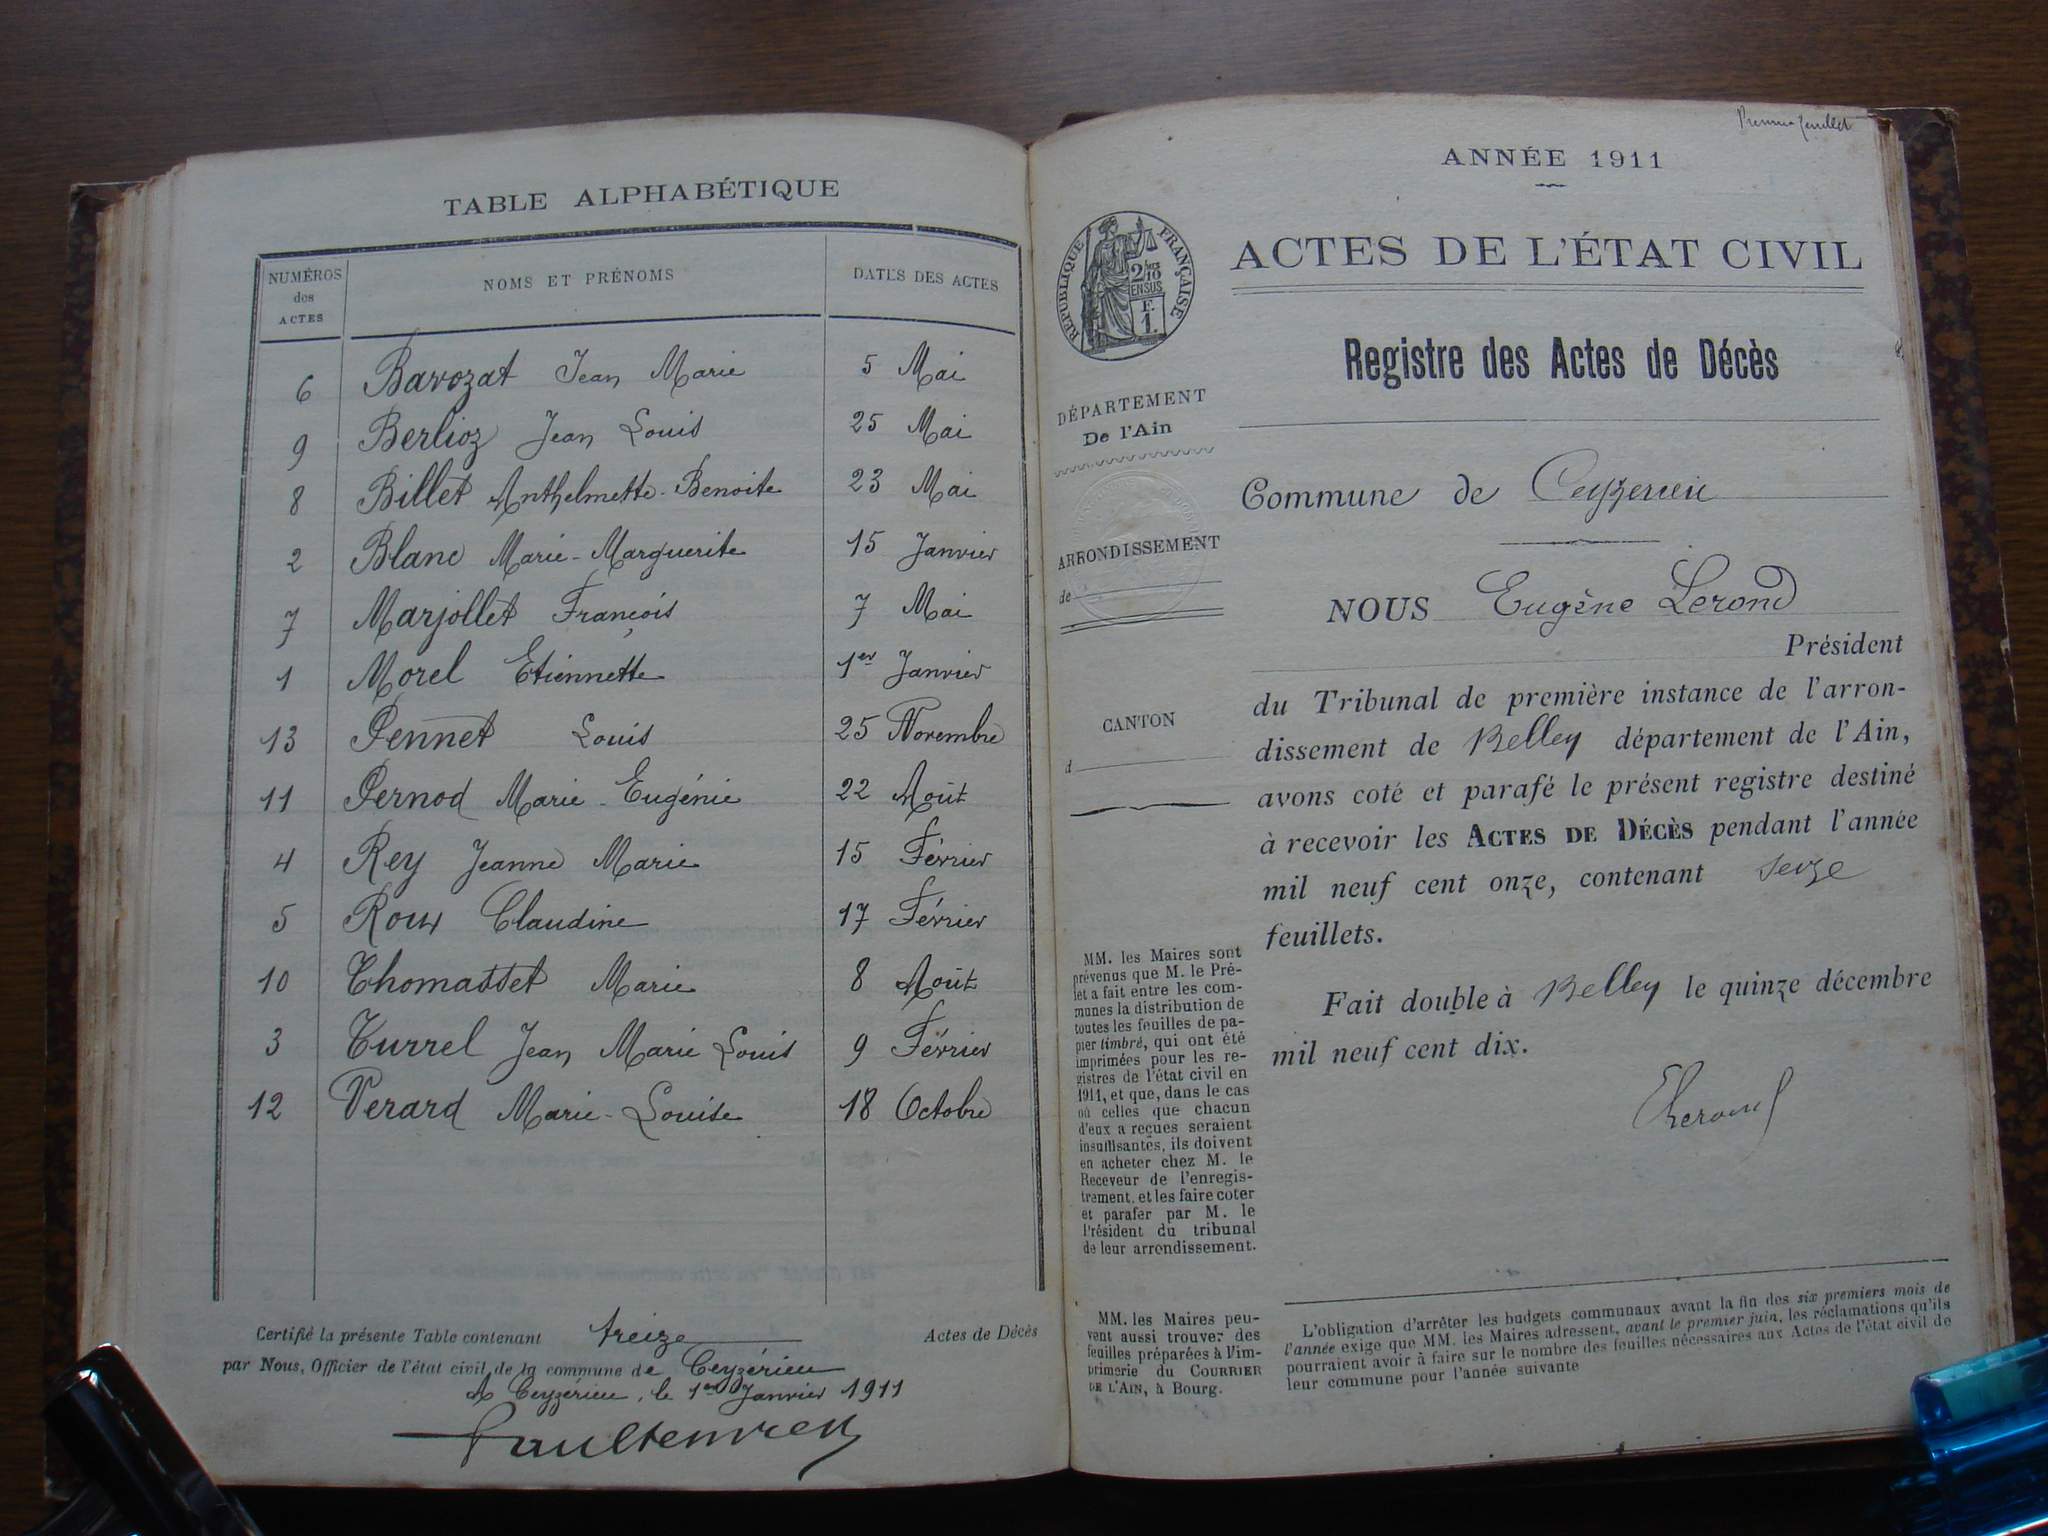 TABLE ALPHABÉTIQUE
NUMÉROS des ACTES NOMS ET PRÉNOMS DATES DES ACTES
6 Bavozat Jean Marie 5 Mai
9 Berlioz Jean Louis 25 Mai
8 Billet Anthelmette-Benoite 23 Mai
2 Blanc Marie-Marguerite 15 Janvier
7 Marjollet François 7 Mai
1 Morel Etiennette 1er Janvier
13 Pennet Louis 25 Novembre
11 Pernod Marie-Eugénie 22 Août
4 Rey Jeanne Marie 15 Février
5 Roux Claudine 17 Février
10 Thomasset Marie 8 Août
3 Turrel Jean Marie Louis 9 Février
12 Verard Marie-Louise 18 Octobre
Certifié la présente Table contenant treize Actes de Décès
par Nous, Officier de l'état civil de la commune de Ceyzérieu
A Ceyzérieu, le 1er Janvier 1911
Premier feuillet
ANNÉE 1911
RÉPUBLIQUE FRANÇAISE
2/10
EN SUS
F.
1.
ACTES DE L'ÉTAT CIVIL
Registre des Actes de Décès
DÉPARTEMENT
De l'Ain
ARRONDISSEMENT
de
CANTON
d
Commune de Ceyzerieu
NOUS Eugène Lerond
Président
du Tribunal de première instance de l'arron-
dissement de Belley département de l'Ain,
avons coté et parafé le présent registre destiné
à recevoir les ACTES DE DÉCÈS pendant l'année
mil neuf cent onze, contenant seize
feuillets.
Fait double à Belley le quinze décembre
mil neuf cent dix.
MM. les Maires sont
prévenus que M. le Pré-
fet a fait entre les com-
munes la distribution de
toutes les feuilles de pa-
pier timbré, qui ont été
imprimées pour les re-
gistres de l'état civil en
1911, et que, dans le cas
où celles que chacun
d'eux a reçues seraient
insuffisantes, ils doivent
en acheter chez M. le
Receveur de l'enregis-
trement, et les faire coter
et parafer par M. le
Président du tribunal
de leur arrondissement.
MM. les Maires peu-
vent aussi trouver des
feuilles préparées à l'im-
primerie du COURRIER
DE L'AIN, à Bourg.
L'obligation d'arrêter les budgets communaux avant la fin des six premiers mois de
l'année exige que MM. les Maires adressent, avant le premier juin, les réclamations qu'ils
pourraient avoir à faire sur le nombre des feuilles nécessaires aux Actes de l'état civil de
leur commune pour l'année suivante